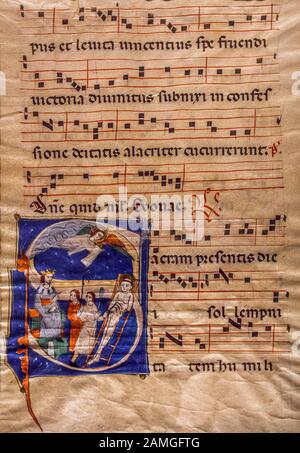 pus et leuita uincentius spe fruendi
uictoria diuinitus subnixi in confes
sione deitatis alacriter cucurrerunt. p̄s.
Dñe quid Euouae.
acram presentis die
sol lempni
ta tem hu mi li
alamy
Image ID: 2AMGFTG
www.alamy.com